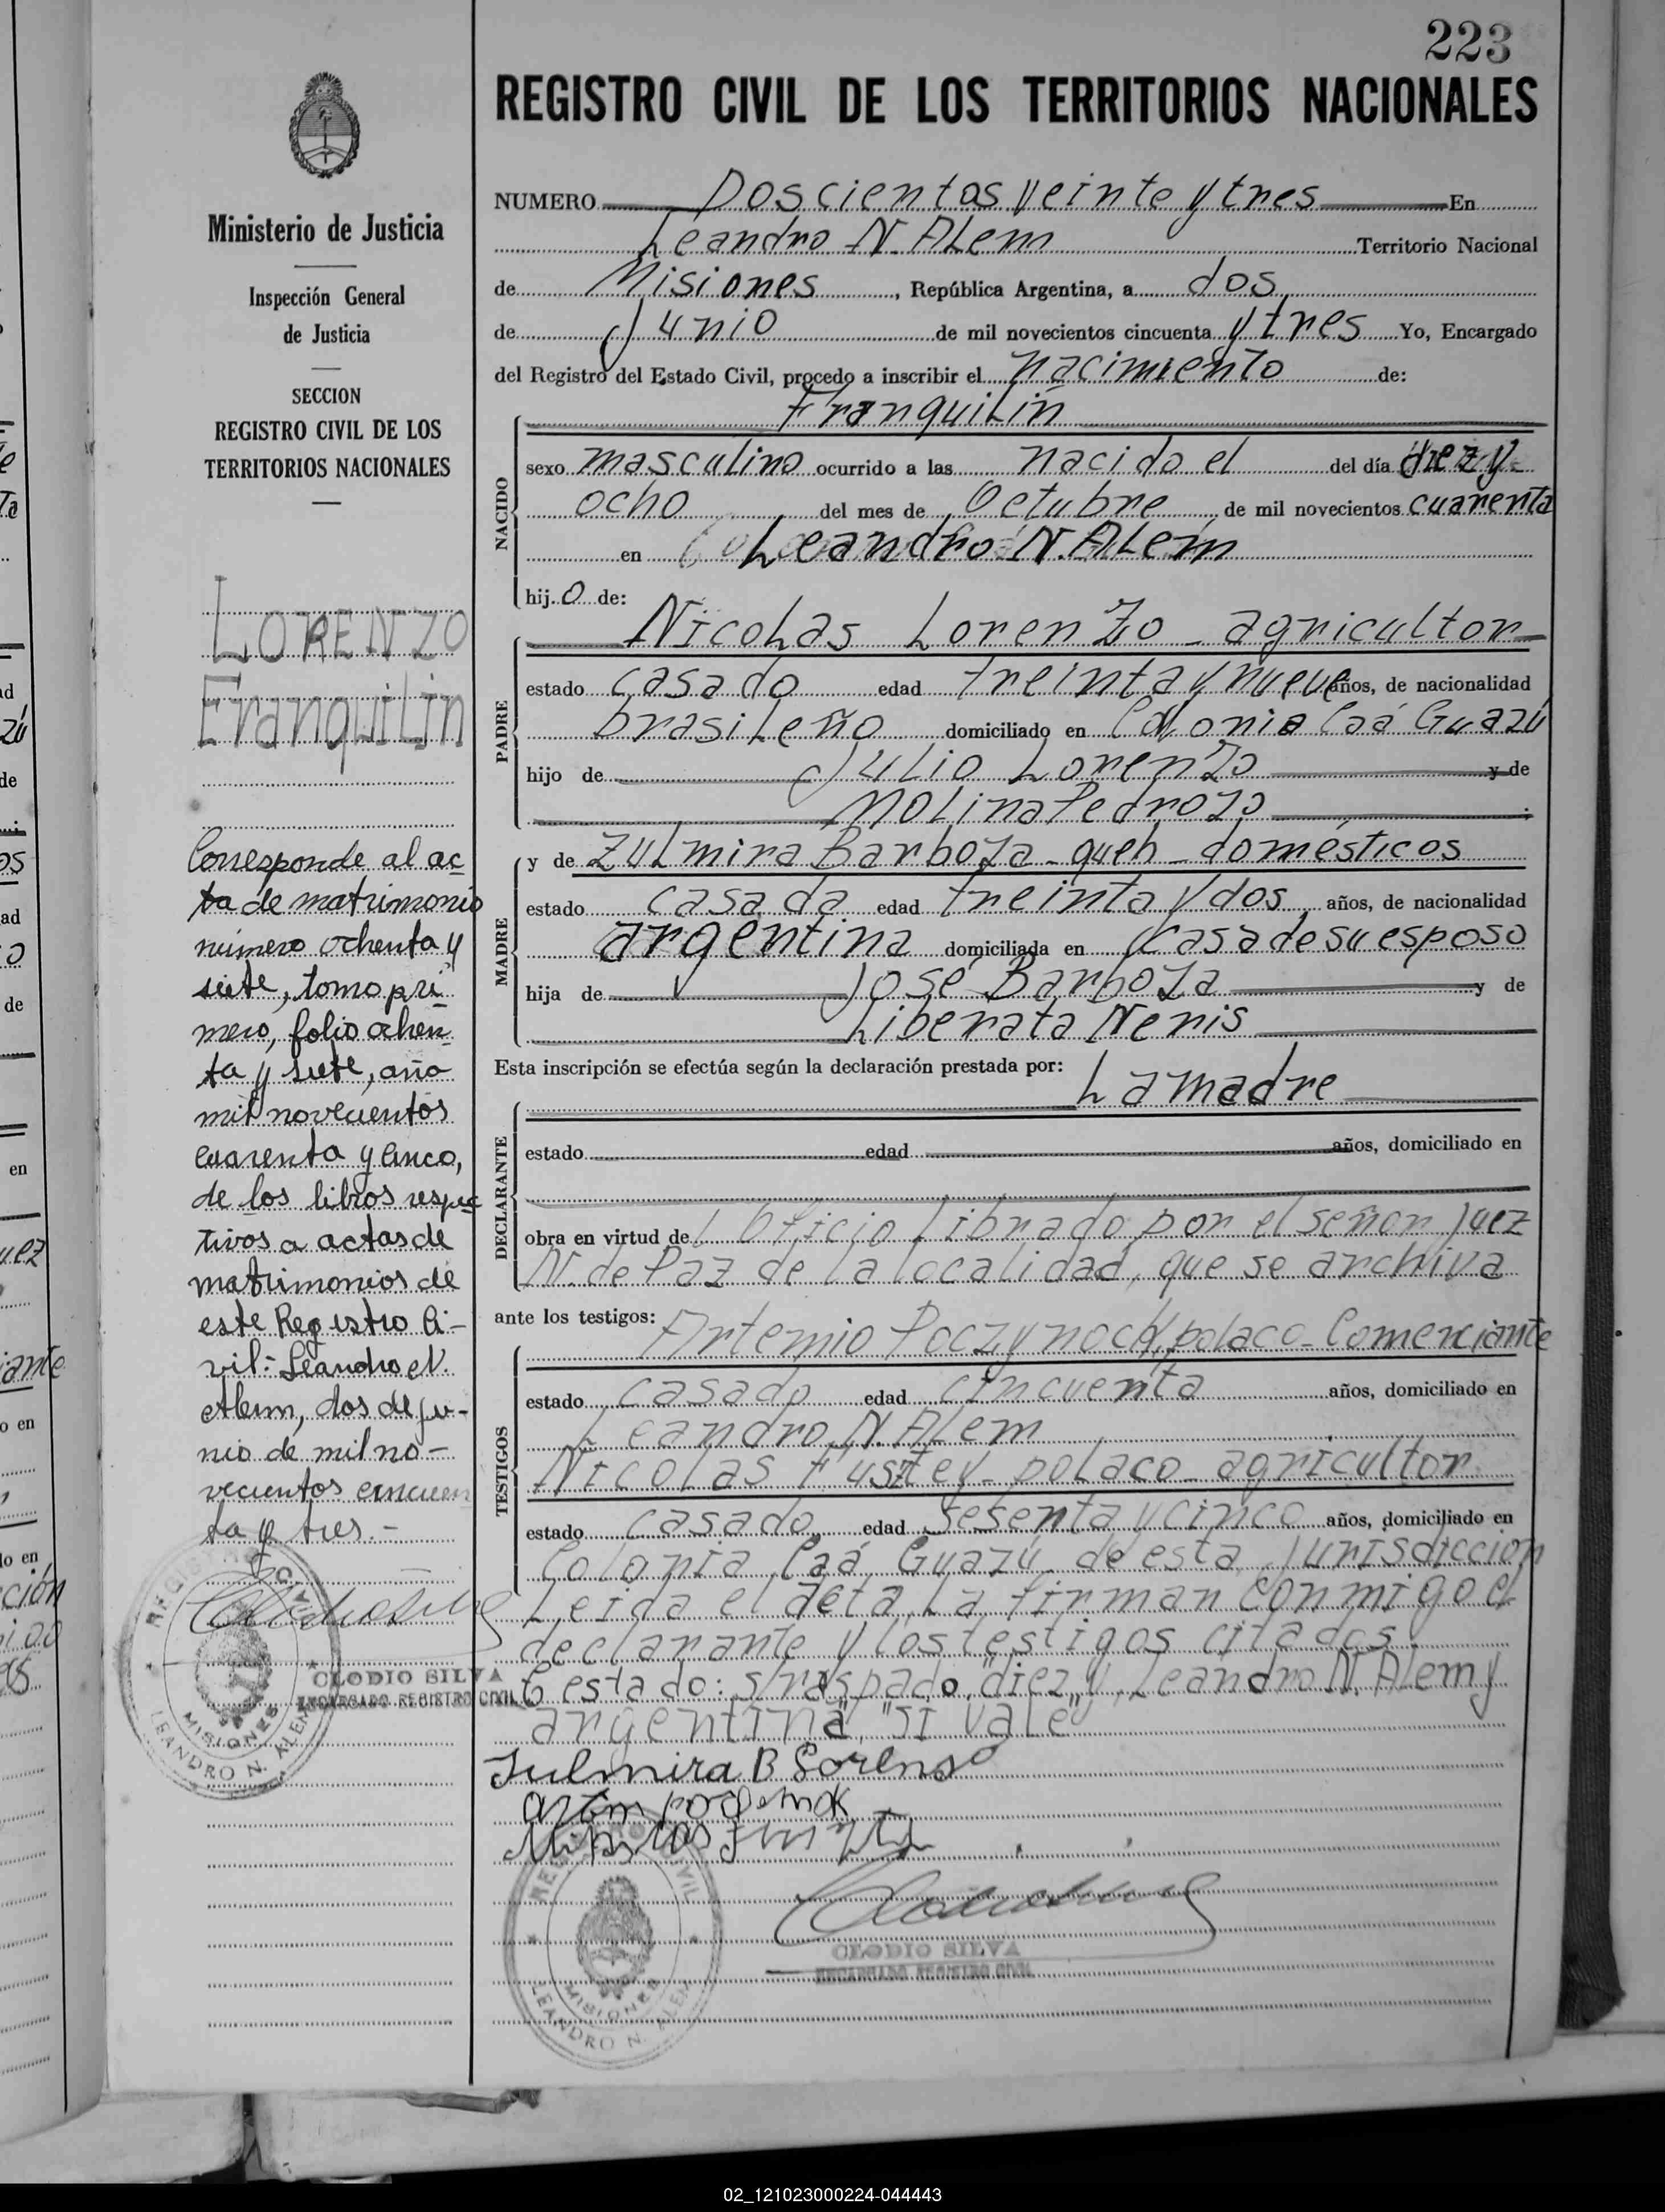 223
REGISTRO CIVIL DE LOS TERRITORIOS NACIONALES
Ministerio de Justicia
Inspección General
de Justicia
SECCION
REGISTRO CIVIL DE LOS
TERRITORIOS NACIONALES
LORENZO
FranquiLin
Corresponde al ac
ta de matrimonio
número ochenta y
siete, tomo pri
mero, folio ochen
ta y siete, año
mil novecientos
cuarenta y cinco,
de los libros respec
tivos a actas de
matrimonios de
este Registro Ci-
vil:- Leandro N.
Alem, dos de ju-
nio de mil no-
vecientos cincuen
ta y tres.-
REGISTRO CIVIL
MISIONES
LEANDRO N. ALEM
CLODIO SILVA
ENCARGADO REGISTRO CIVIL
NUMERO Doscientos veinte y tres En
Leandro N. ALem Territorio Nacional
de Misiones, República Argentina, a dos
de Junio de mil novecientos cincuenta y tres Yo, Encargado
del Registro del Estado Civil, procedo a inscribir el nacimiento de:
NACIDO
FranquiLin
sexo masculino ocurrido a las nacido el del día diez y
ocho del mes de Octubre de mil novecientos cuarenta
en Leandro N. ALem
hijo de:
PADRE
NicoLas Lorenzo - agricultor
estado casado edad treinta y nueve años, de nacionalidad
brasiLeño domiciliado en Colonia Caá Guazú
hijo de Julio Lorenzo y de
MoLina Pedrozo
MADRE
y de ZuLmira Barboza - queh - domésticos
estado casada edad treinta y dos, años, de nacionalidad
argentina domiciliada en casa de su esposo
hija de José Barboza y de
Liberata Neris
Esta inscripción se efectúa según la declaración prestada por:
La madre
DECLARANTE
estado edad años, domiciliado en
obra en virtud de Oficio Librado por el señor Juez
N. de Paz de la localidad, que se archiva
ante los testigos:
TESTIGOS
Artemio Poczynock, polaco - Comerciante
estado casado edad cincuenta años, domiciliado en
Leandro N. ALem
Nicolas Fustey - polaco - agricultor
estado casado edad sesenta y cinco años, domiciliado en
Colonia Caá Guazú de esta Jurisdicción
Leida el acta, La firman conmigo el
declarante y los testigos citados.
estado: s/raspado, "diez y, Leandro N. Alem y
argentina", "SI vale"
Julmira B Lorenso
REGISTRO CIVIL
MISIONES
LEANDRO N. ALEM
CLODIO SILVA
ENCARGADO REGISTRO CIVIL
02_121023000224-044443